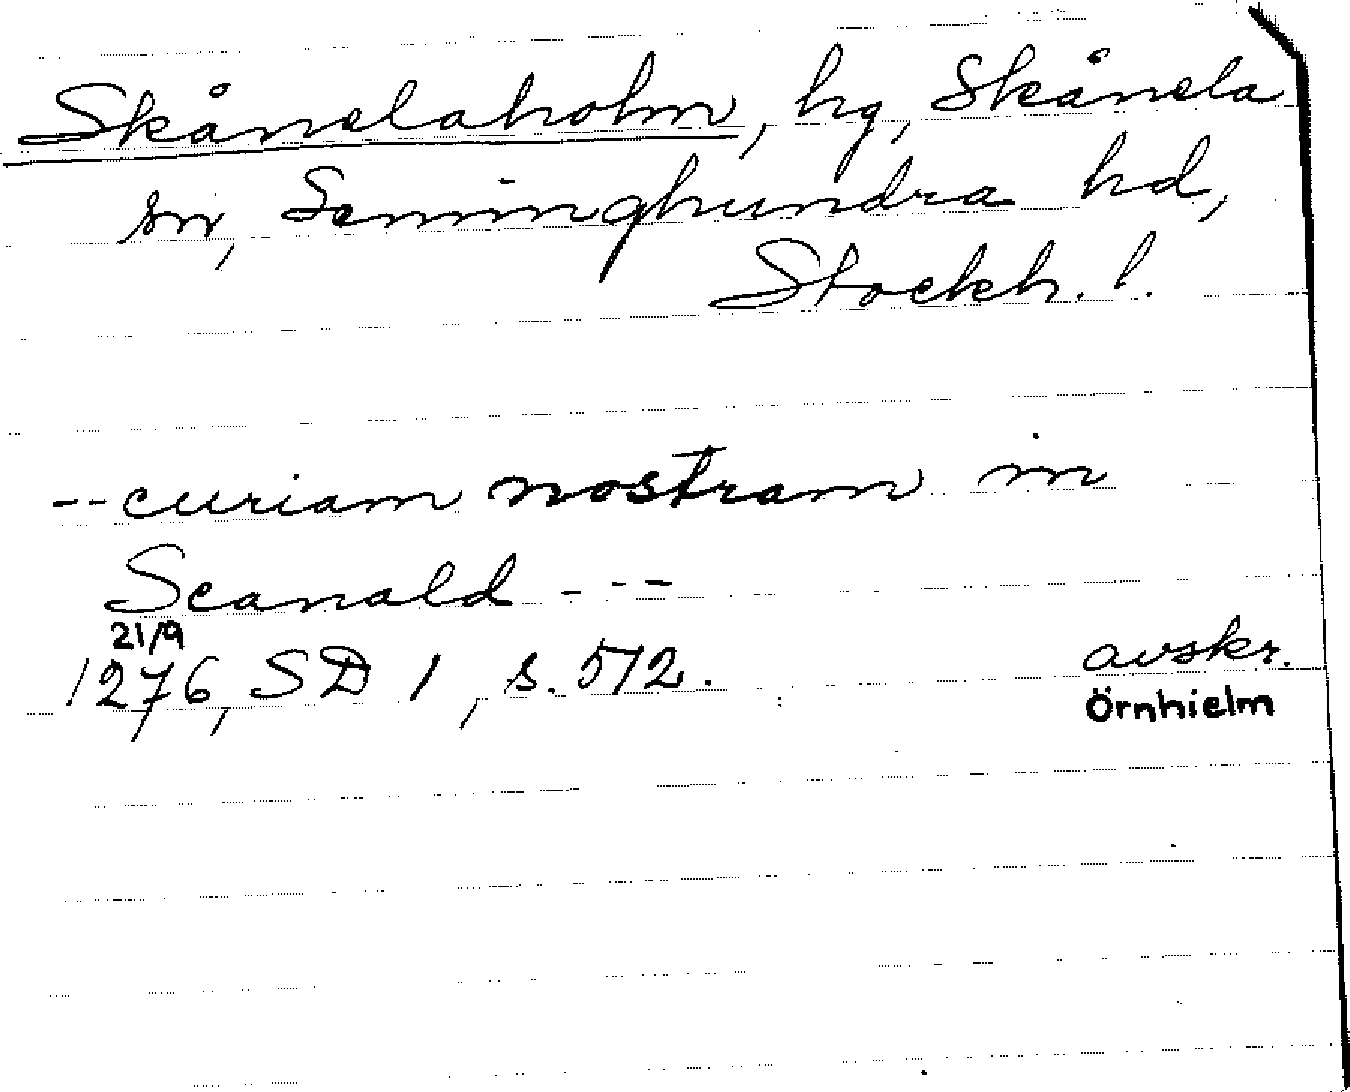 Skånelaholm, hg, Skånela
sn, Seminghundra hd,
Stockh. l.
-- curiam nostram in
Scanald - --
21/9
1276, SD 1, s. 572. avskr.
Örnhielm